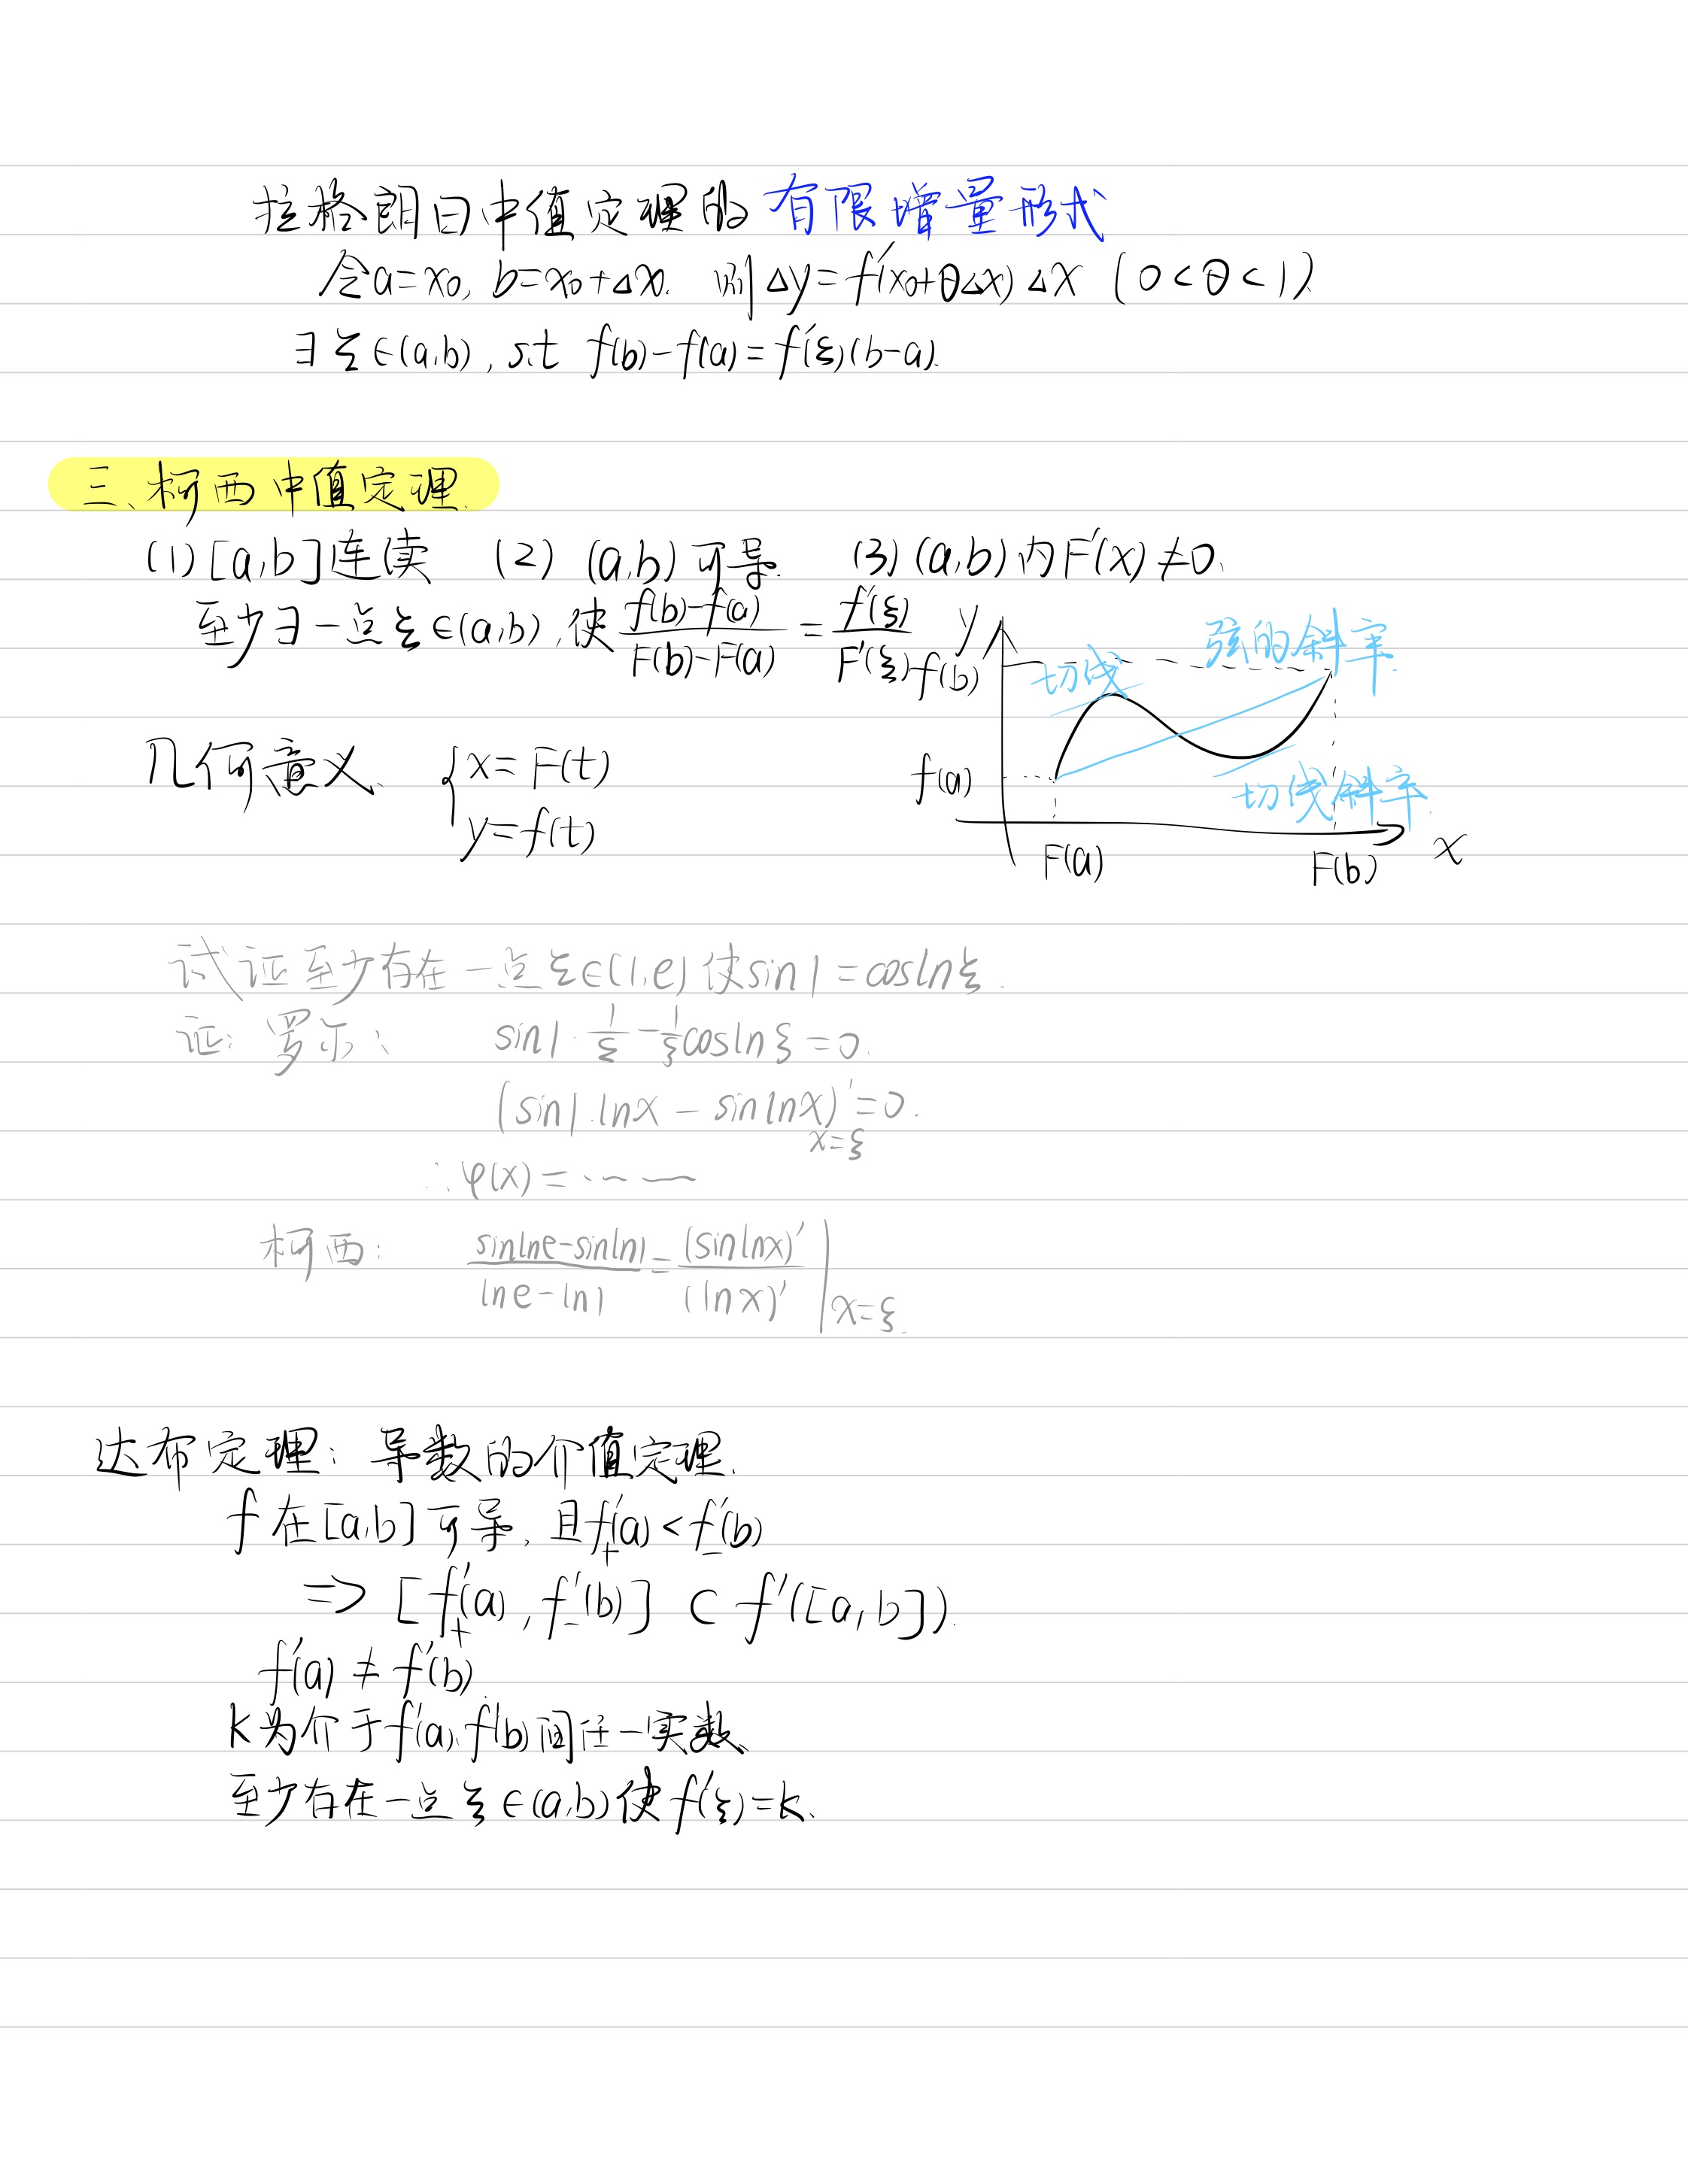 拉格朗日中值定理的有限增量形式
令a=x₀, b=x₀+Δx. 则Δy=f′(x₀+θΔx)Δx (0<θ<1)
∃ξ∈(a,b), s.t f(b)-f(a)=f′(ξ)(b-a).
三、柯西中值定理.
(1)[a,b]连续 (2) (a,b)可导. (3)(a,b)内F′(x)≠0.
至少∃一点ξ∈(a,b),使 (f(b)-f(a))/(F(b)-F(a)) = f′(ξ)/F′(ξ)
y
弦的斜率
f(b)
切线
f(a)
切线斜率
F(a)
F(b)
x
几何意义. { x=F(t)
y=f(t)
试证至少存在一点ξ∈(1,e)使sin1=coslnξ.
证: 罗尔: sin1·1/ξ-1/ξcoslnξ=0.
(sin1.lnx-sinlnx)′=0.
x=ξ
∴φ(x)=······
柯西: (sinlne-sinln1)/(lne-ln1)=(sinlnx)′/(lnx)′|x=ξ.
达布定理: 导数的介值定理.
f在[a,b]可导, 且f′₊(a)<f′₋(b)
⇒ [f′₊(a),f′₋(b)]⊂f′([a,b]).
f′(a)≠f′(b).
k为介于f′(a),f′(b)间任一实数、
至少存在一点ξ∈(a,b)使f′(ξ)=k.